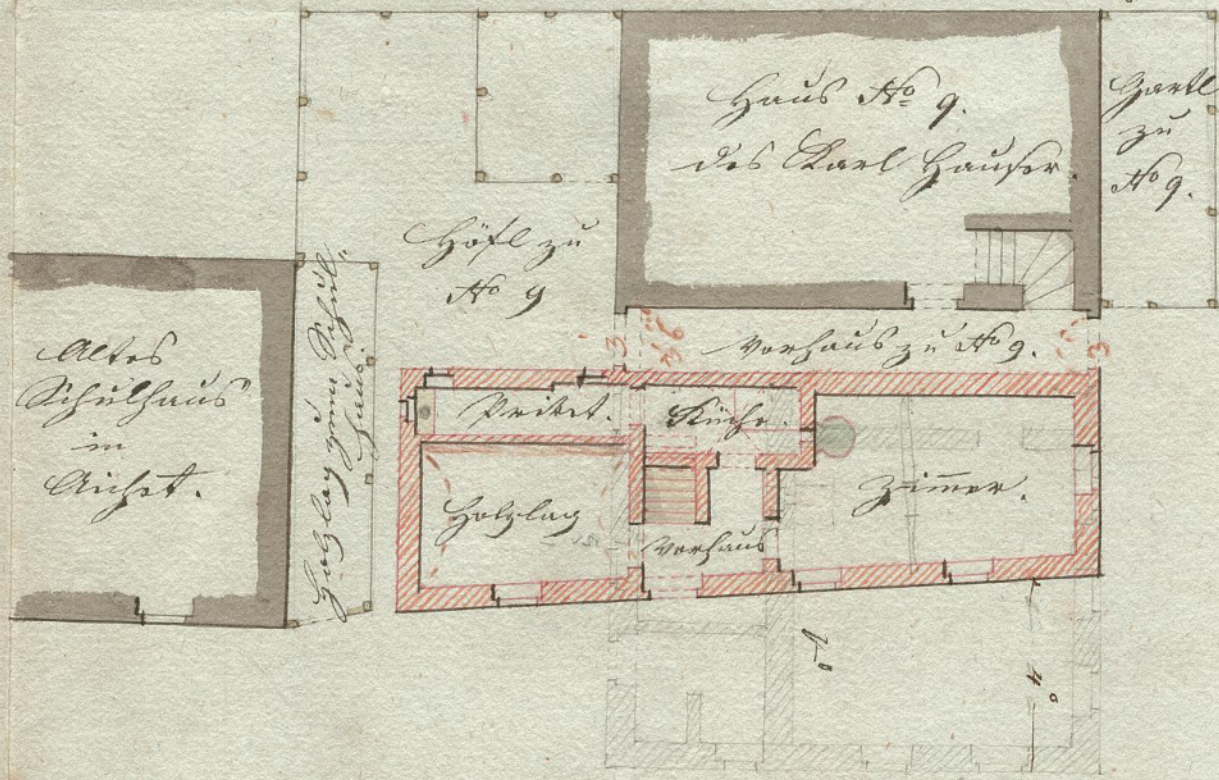 Haus No 9.
des Karl Hauser.
Gartl
zu
No 9.
Höfl zu
No 9
Altes
Schulhaus
in
Aichet.
Holzlag zum Schul-
haus.
Vorhaus zu No 9.
3
3
Privet.
Küche.
Zimmer.
Holzlag
Vorhaus